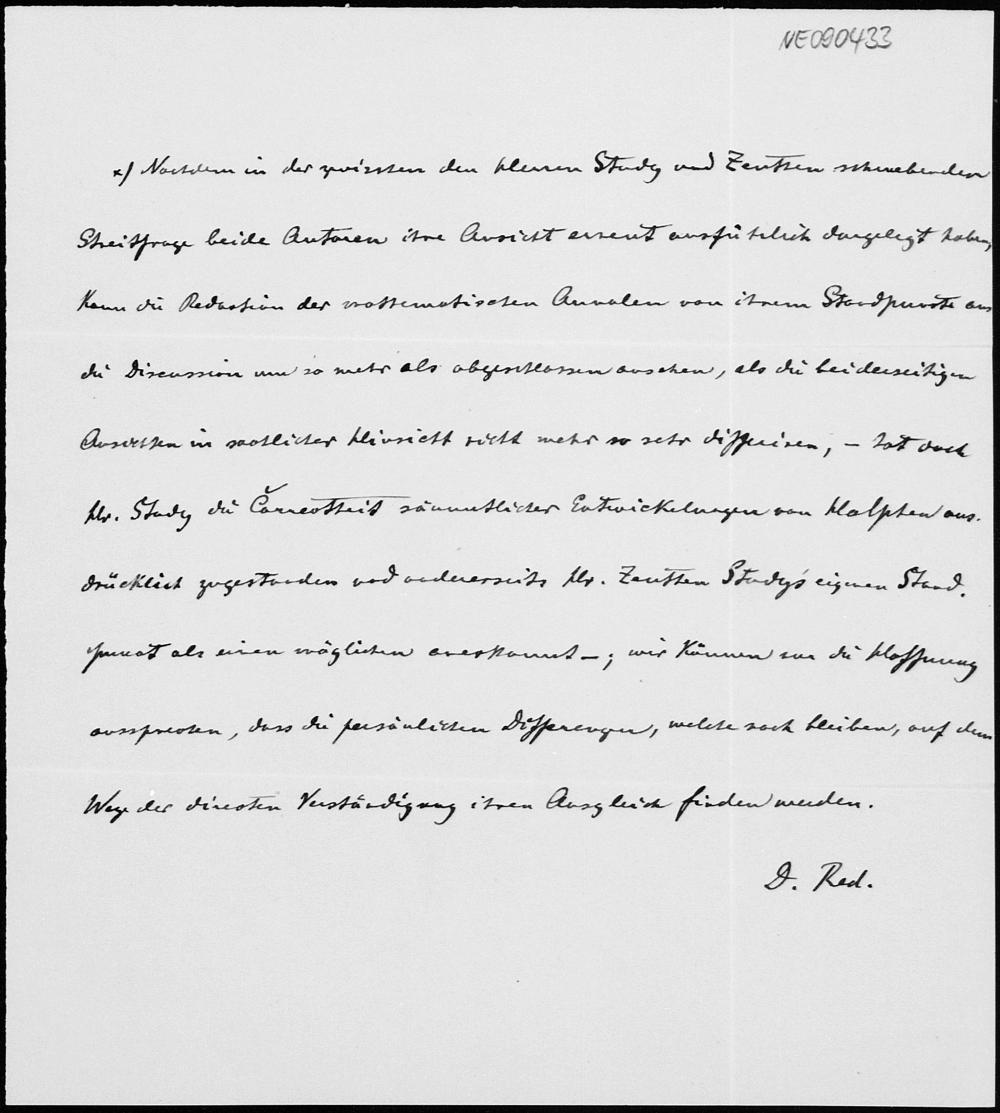 NE090433
*) Nachdem in der zwischen den Herren Study und Zeuthen schwebenden
Streitfrage beide Autoren ihre Ansicht erneut ausführlich dargelegt haben,
kann die Redaction der mathematischen Annalen von ihrem Standpuncte aus
die Discussion um so mehr als abgeschlossen ansehen, als die beiderseitigen
Ansichten in sachlicher Hinsicht nicht mehr so sehr differiren, – hat doch
Hr. Study die Correctheit sämmtlicher Entwickelungen von Halphen aus-
drücklich zugestanden und andererseits Hr. Zeuthen Study's eigenen Stand-
punct als einen möglichen anerkannt –; wir können nur die Hoffnung
aussprechen, dass die persönlichen Differenzen, welche noch bleiben, auf dem
Wege der directen Verständigung ihren Ausgleich finden werden.
D. Red.